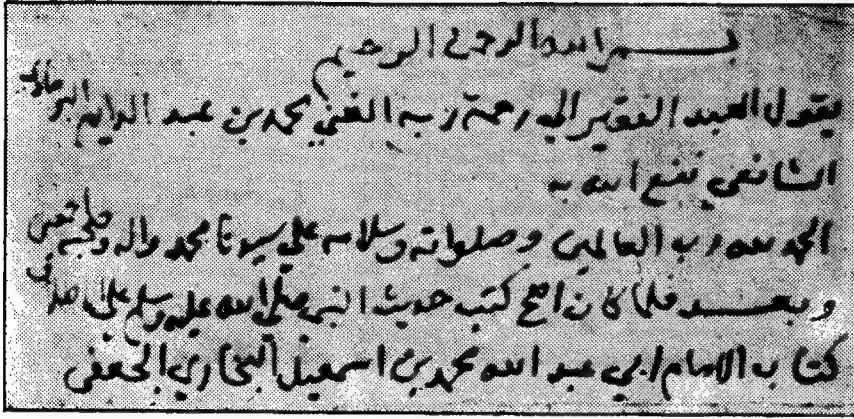 بسم الله الرحمن الرحيم
يقول العبد الفقير الى رحمة ربه الغني محمد بن عبد الدايم البرماوي
الشافعي نفع الله به
الحمد لله رب العالمين وصلواته وسلامه على سيدنا محمد واله وصحبه اجمعين
وبعد فلما كان اصح كتب حديث النبي صلى الله عليه وسلم على
كتاب الامام ابي عبد الله محمد بن اسمعيل البخاري الجعفي